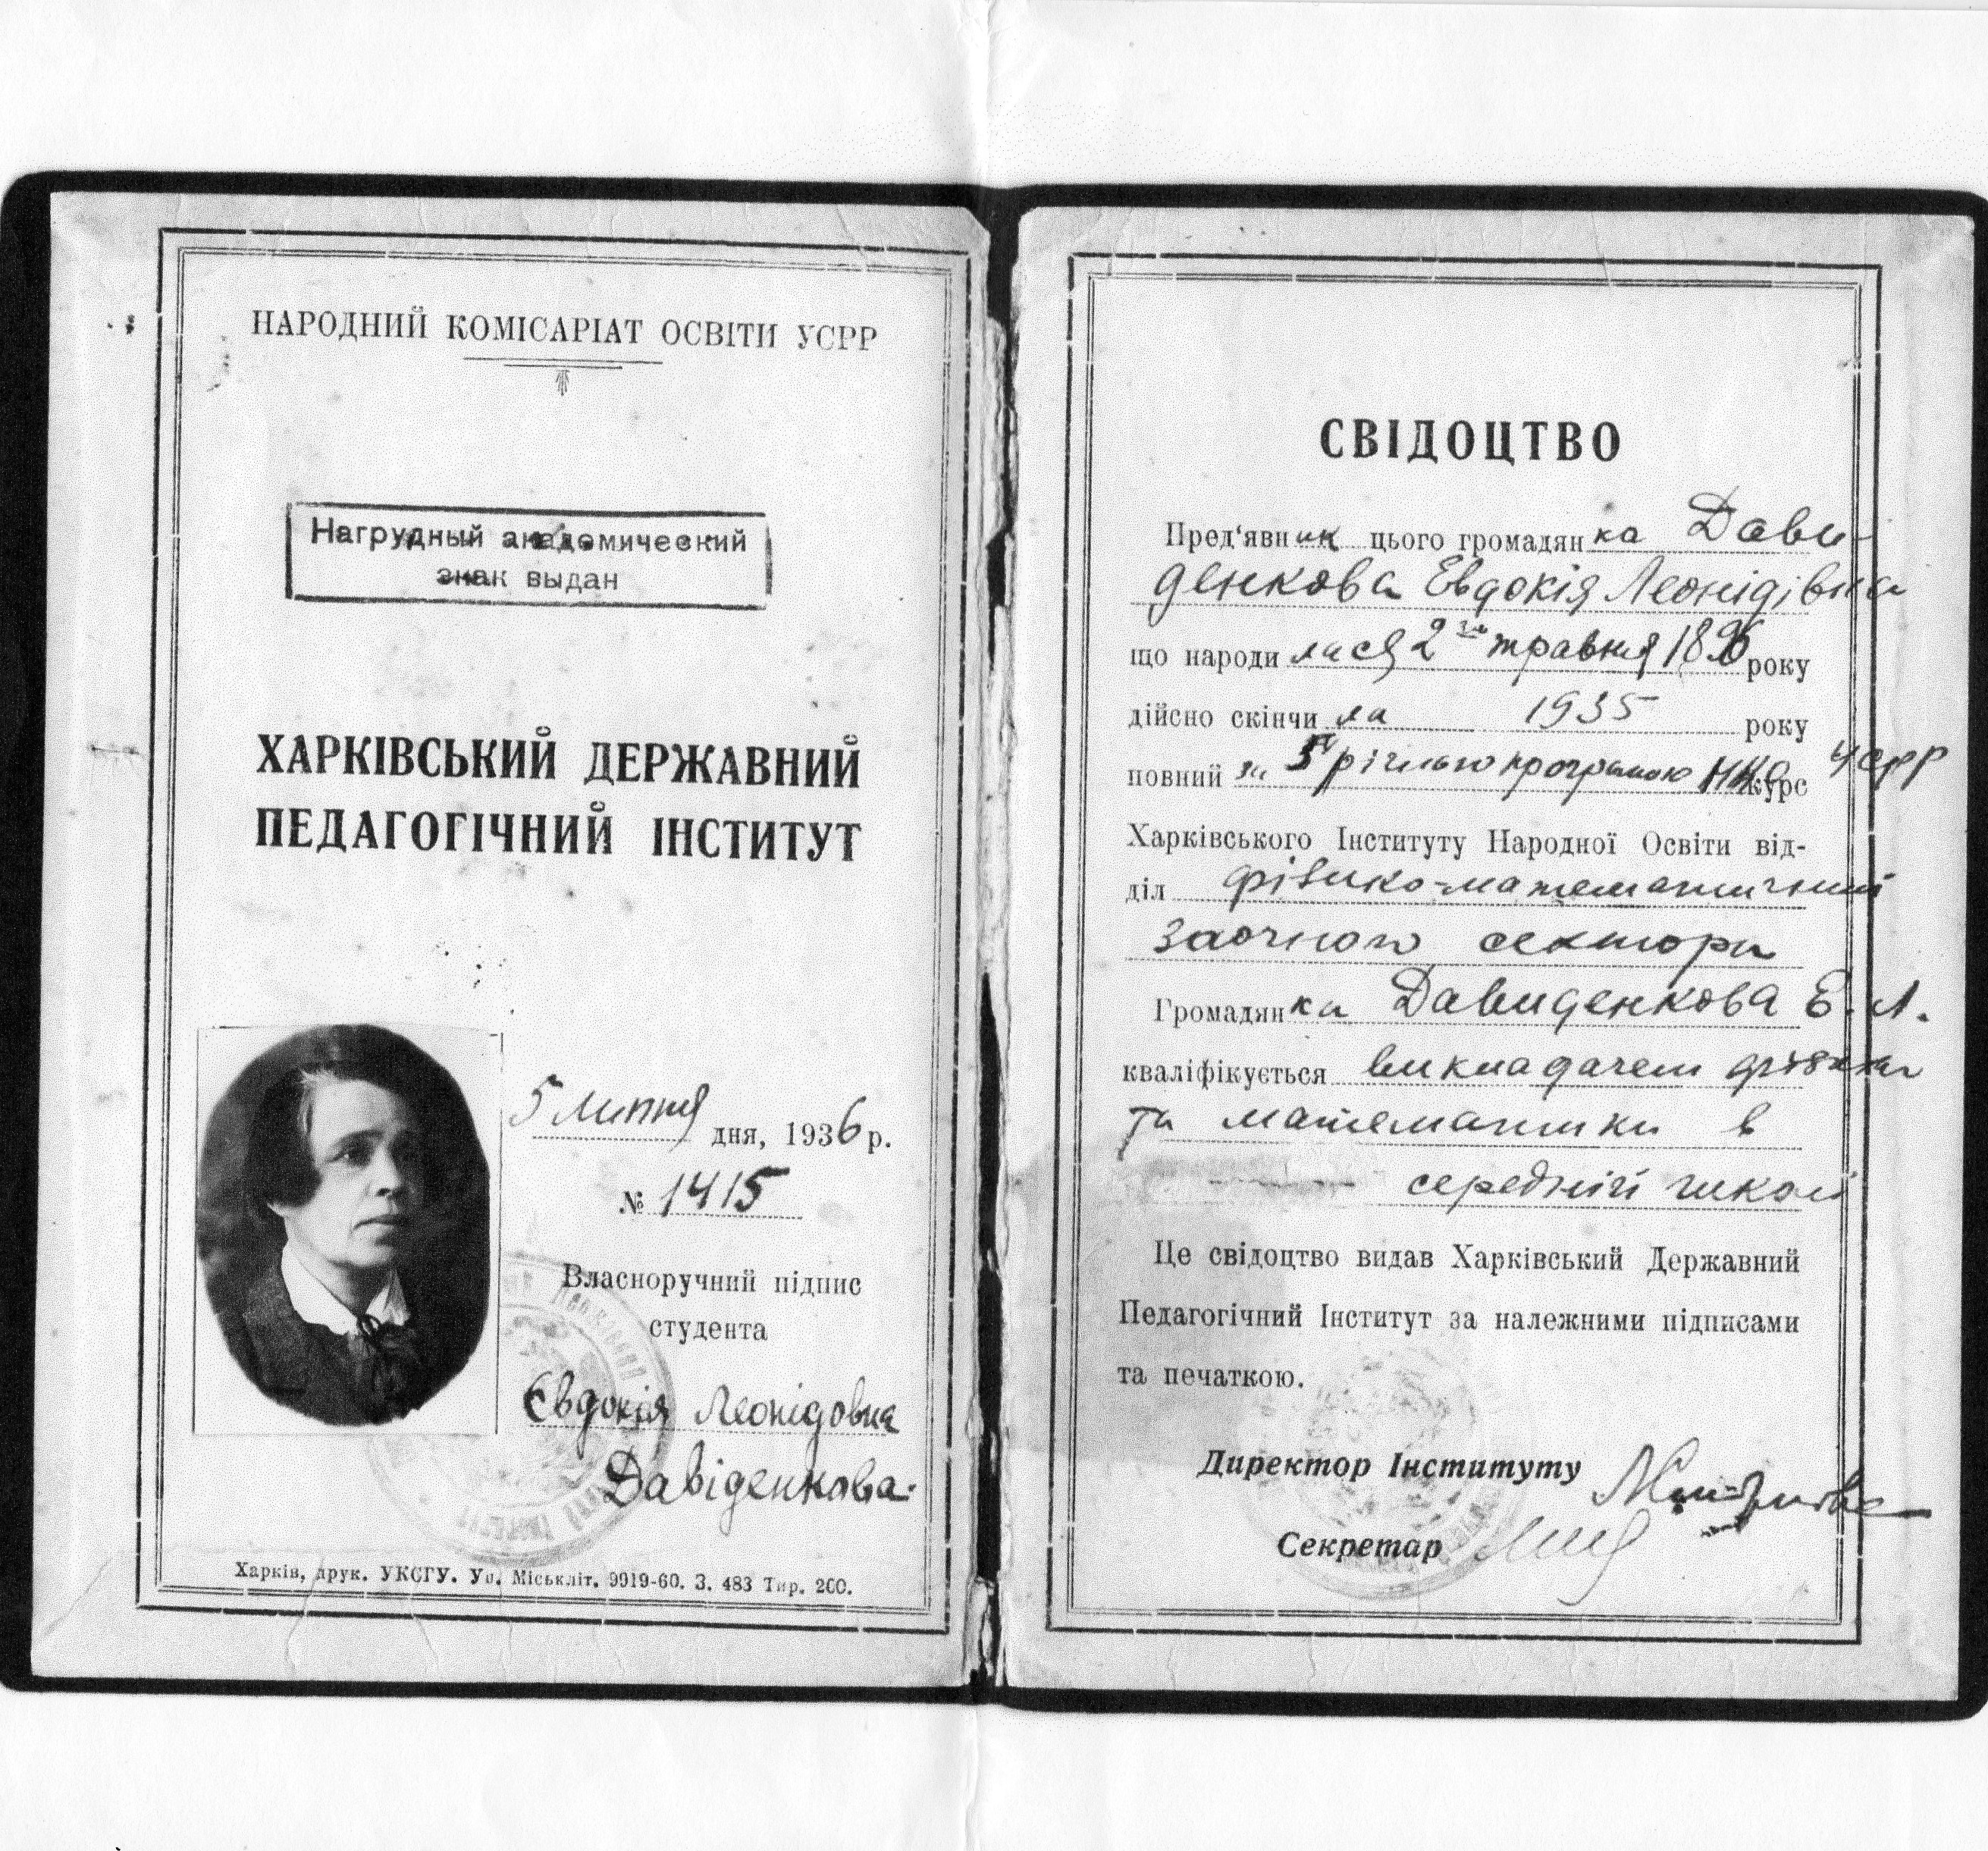 НАРОДНИЙ КОМІСАРІАТ ОСВІТИ УСРР
Нагрудный академический
знак выдан
ХАРКІВСЬКИЙ ДЕРЖАВНИЙ
ПЕДАГОГІЧНИЙ ІНСТИТУТ
5 липня дня, 1936 р.
№ 1415
Власноручний підпис
студента
Євдокія Леонідовна
Давіденкова
Харків, друк. УКСГУ. Уп. Міськліт. 9919-60. З. 483 Тир. 200.
СВІДОЦТВО
Пред'явник цього громадянка Дави-
денкова Евдокія Леонідівна
що народилася 2го травня 1896 року
дійсно скінчила 1935 року
повний за річною програмою НКО УСРР курс
Харківського Інституту Народної Освіти від-
діл фізико-математичний
заочного сектора
Громадянка Давиденкова Е. Л.
кваліфікується викладачем фізики
та математики в
середній школі
Це свідоцтво видав Харківський Державний
Педагогічний Інститут за належними підписами
та печаткою.
Директор Інституту
Секретар